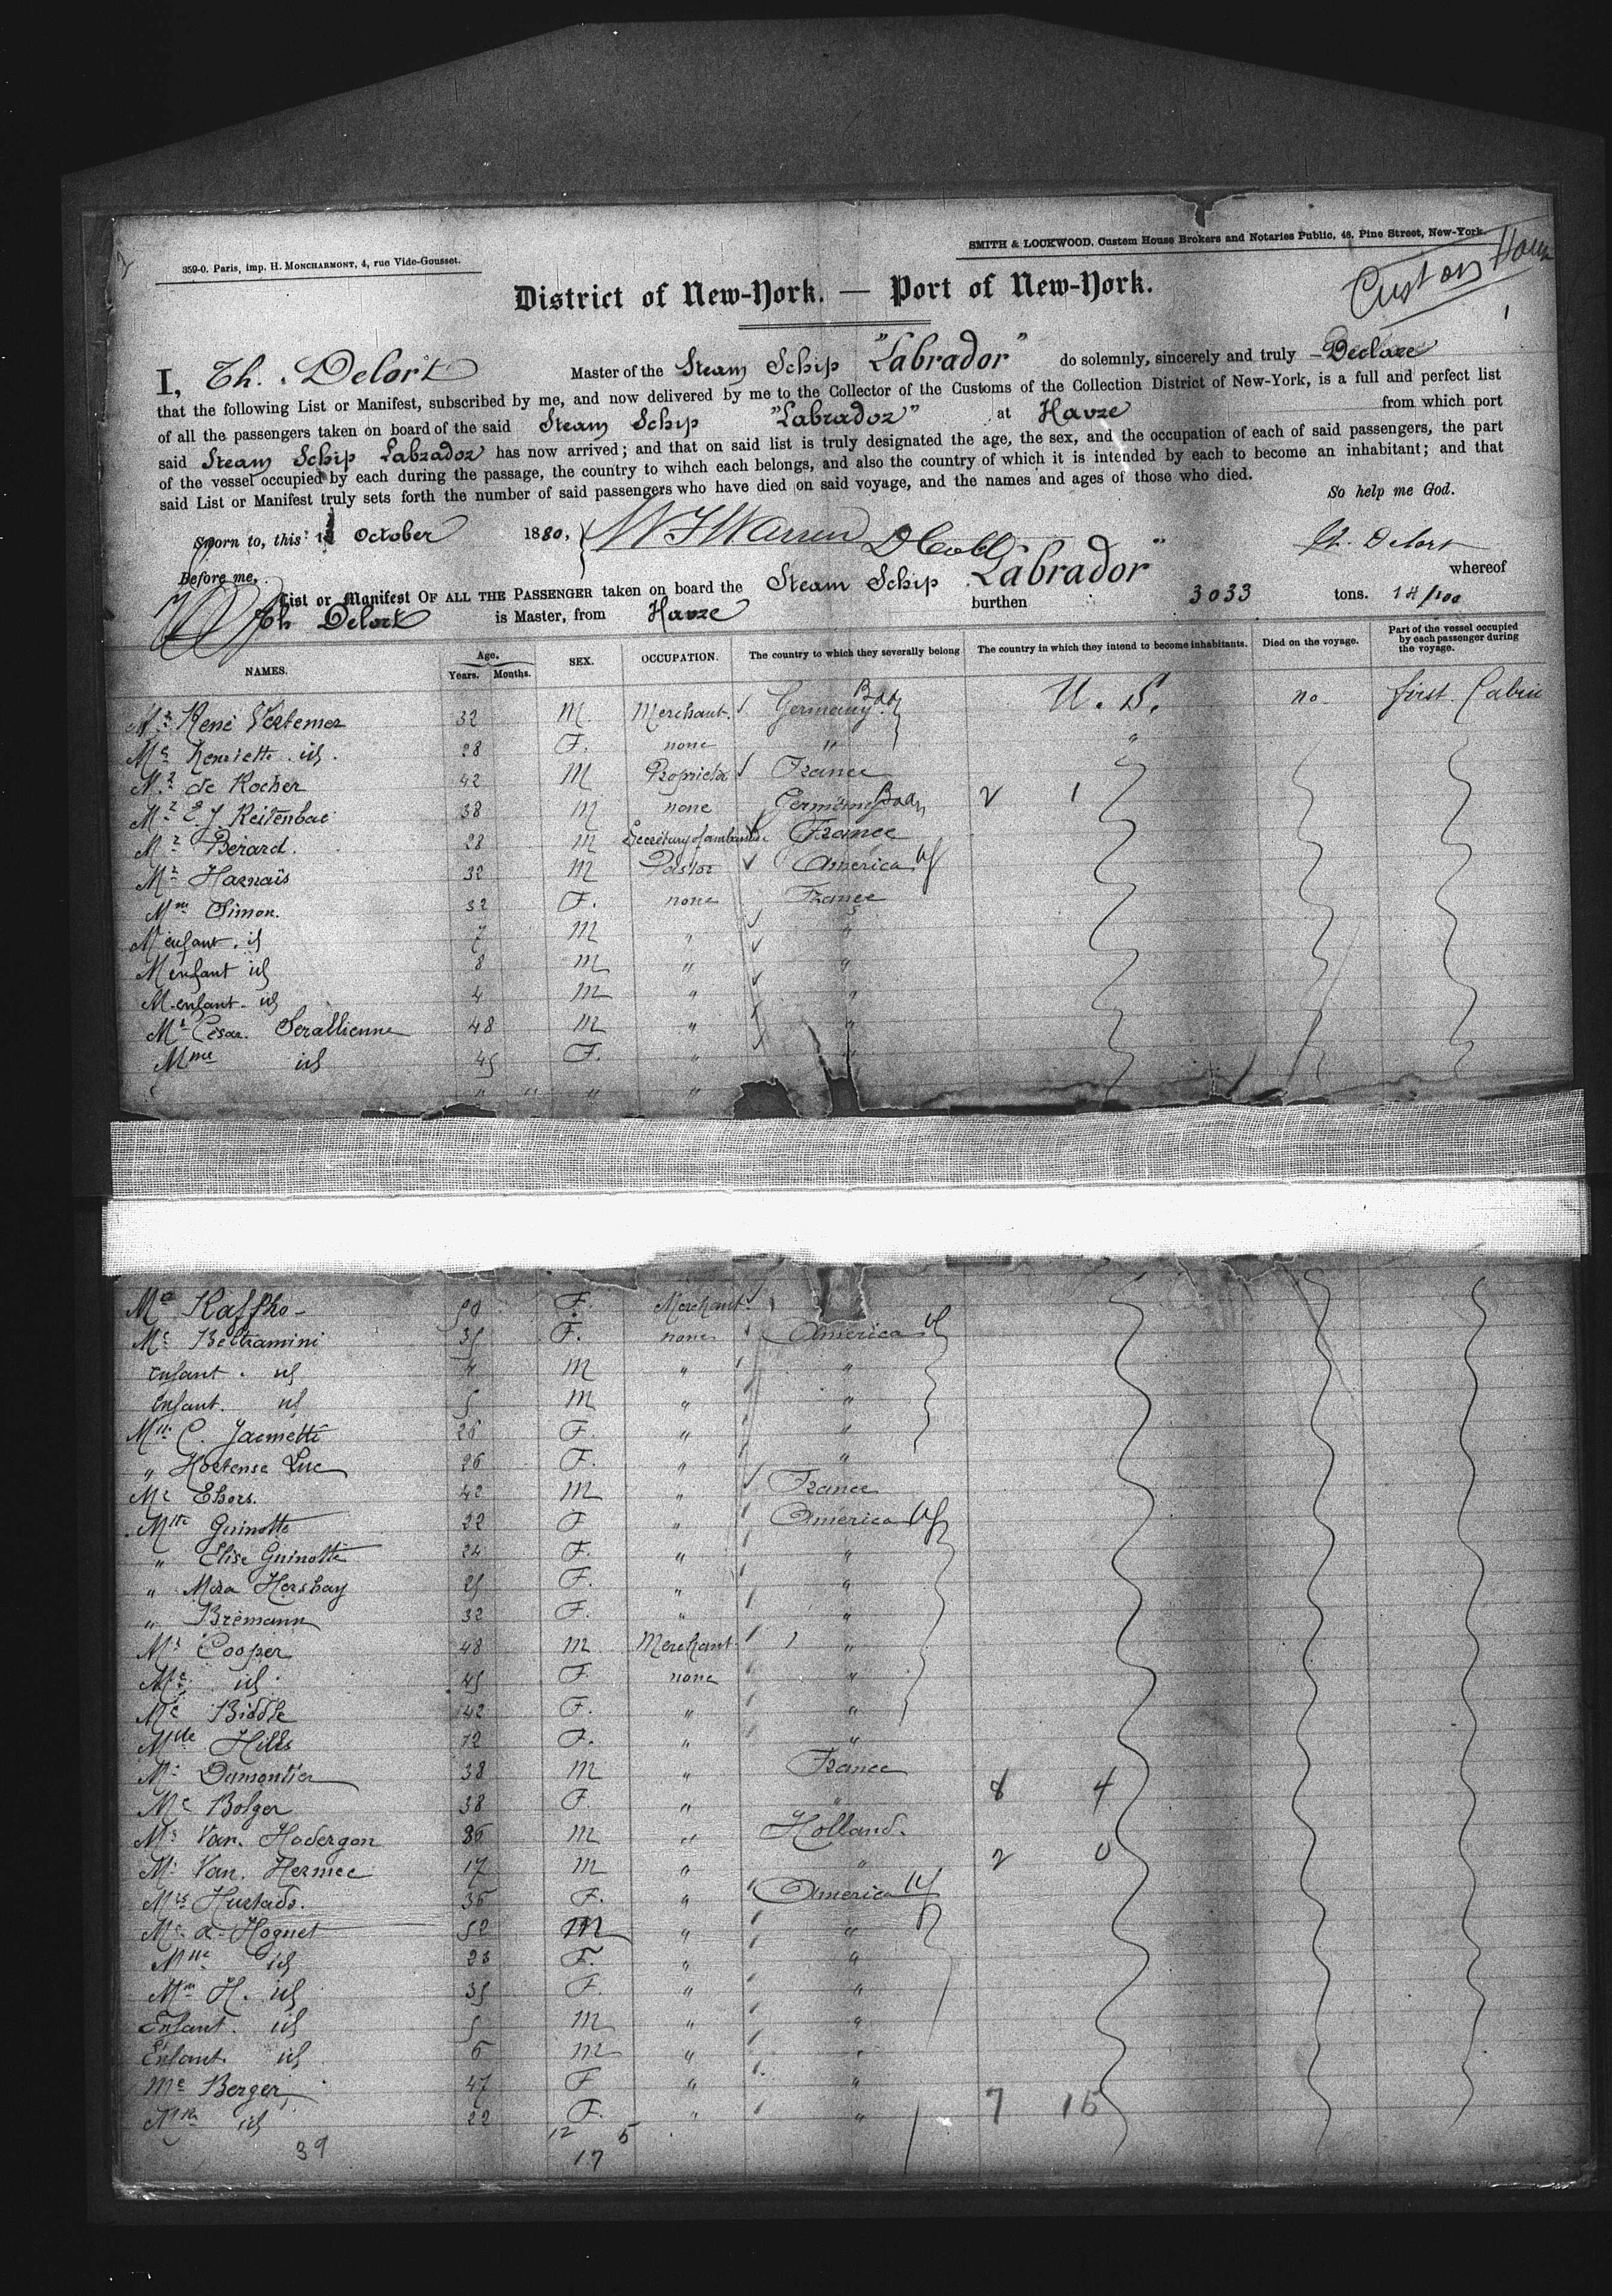 359-0. Paris, imp. H. MONCHARMONT, 4, rue Vide-Gousset.
SMITH & LOCKWOOD, Custom House Brokers and Notaries Public, 48, Pine Street, New-York.
Custom House
District of New-York. — Port of New-York.
1
I, Th. Delort Master of the Steam Schip "Labrador" do solemnly, sincerely and truly Declare
that the following List or Manifest, subscribed by me, and now delivered by me to the Collector of the Customs of the Collection District of New-York, is a full and perfect list
of all the passengers taken on board of the said Steam Schip "Labrador" at Havre from which port
said Steam Schip Labrador has now arrived; and that on said list is truly designated the age, the sex, and the occupation of each of said passengers, the part
of the vessel occupied by each during the passage, the country to wihch each belongs, and also the country of which it is intended by each to become an inhabitant; and that
said List or Manifest truly sets forth the number of said passengers who have died on said voyage, and the names and ages of those who died.
So help me God.
Sworn to, this October 1880, Th. Delort
Before me,
List or Manifest OF ALL THE PASSENGER taken on board the Steam Schip Labrador" whereof
Th Delort is Master, from Havre burthen 3033 tons. 14/100
NAMES. Age. Years. Months. SEX. OCCUPATION. The country to which they severally belong The country in which they intend to become inhabitants. Died on the voyage. Part of the vessel occupied by each passenger during the voyage.
Mr René Vertemer 32 M. Merchant. Germany Bad U. S. no first Cabin
Me Henriette id. 28 F. none " "
Mr de Rocher 42 M Proprietor France
Mr E. J. Reitenbac 38 M none Germany Bad 2 1
Mr Bérard. 28 M Secretary of ambassade France
Mr Harnais 32 M Pastor America US
Mme Simon. 32 F. none France
M enfant. id 7 M " "
M enfant id 8 M " "
M enfant. id 4 M " "
Mr César. Serallienne 48 M " "
Mme id 45 F. " "
" " " "
Me Raffho- 50 F. Merchant.
Me Beltramini 35 F. none America US
Enfant. id 4 M " "
Enfant. id 5 M " "
Mlle C. Jacmette 28 F. " "
" Hortense Luc 26 F. " "
Mr Ehors. 42 M " France
Mlle Guinotte 22 F " America US
" Elise Guinotte 24 F. " "
" Mira Hershay 25 F. " "
" Brémann 32 F. " "
Mr Cooper 48 M Merchant "
Me id 45 F. none "
Me Biddle 42 F. " "
Mlle Hills 12 F. " "
Mr Dumontier 38 M " France
Me Bolger 38 F. " " 8 4
Mr Van. Hadergon 36 M " Holland.
Mr Van. Hermee 17 M " " 2 0
Mrs Hustads. 36 F. " America US
Mr a. Hoguet 52 M " "
Mlle id 23 F. " "
Mme H. id 35 F. " "
Enfant. id 5 M " "
Enfant id 6 M " "
Me Berger 47 F " "
Mlle id 22 F. " " 7 15
12 5
39 17